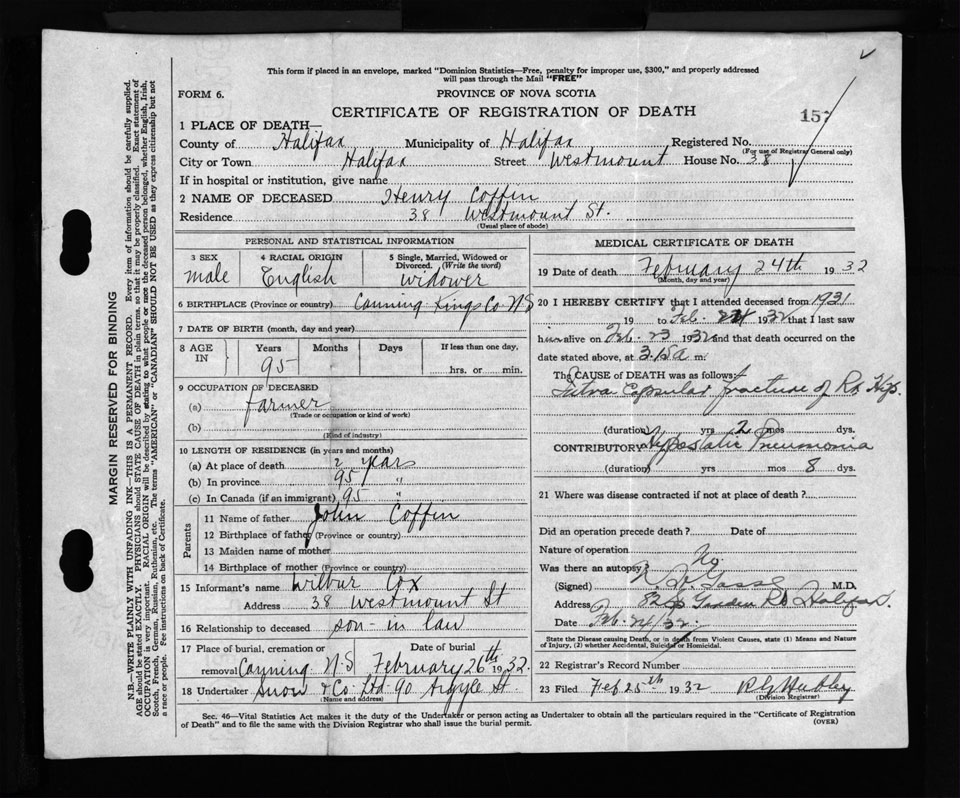 This form if placed in an envelope, marked "Dominion Statistics—Free, penalty for improper use, $300," and properly addressed
will pass through the Mail "FREE"
FORM 6.
PROVINCE OF NOVA SCOTIA
CERTIFICATE OF REGISTRATION OF DEATH
157
1 PLACE OF DEATH—
County of Halifax Municipality of Halifax Registered No.
(For use of Registrar General only)
City or Town Halifax Street Westmount House No. 38
If in hospital or institution, give name
2 NAME OF DECEASED Henry Coffin
Residence 38 Westmount St.
(Usual place of abode)
PERSONAL AND STATISTICAL INFORMATION
3 SEX 4 RACIAL ORIGIN 5 Single, Married, Widowed or
Divorced. (Write the word)
male English widower
6 BIRTHPLACE (Province or country) Canning Kings Co N.S
7 DATE OF BIRTH (month, day and year)
8 AGE IN Years Months Days If less than one day,
95 hrs. or min.
9 OCCUPATION OF DECEASED
(a) farmer
(Trade or occupation or kind of work)
(b)
(Kind of industry)
10 LENGTH OF RESIDENCE (in years and months)
(a) At place of death 2 years
(b) In province 95 "
(c) In Canada (if an immigrant) 95 "
Parents
11 Name of father John Coffin
12 Birthplace of father (Province or country)
13 Maiden name of mother
14 Birthplace of mother (Province or country)
15 Informant's name Wilbur Cox
Address 38 Westmount St
16 Relationship to deceased son-in law
17 Place of burial, cremation or Date of burial
removal Canning N.S February 26th 1932.
18 Undertaker Snow & Co Ltd 90 Argyle St.
(Name and address)
MEDICAL CERTIFICATE OF DEATH
19 Date of death February 24th 1932
(Month, day and year)
20 I HEREBY CERTIFY that I attended deceased from 1931
19 to Feb. 24 1932 that I last saw
him alive on Feb. 23 1932 and that death occurred on the
date stated above, at a m.
The CAUSE of DEATH was as follows:
Capsular fracture of Rt Hip.
(duration) yrs 2 mos dys.
CONTRIBUTORY Hypostatic Pneumonia
(duration) yrs mos 8 dys.
21 Where was disease contracted if not at place of death?
Did an operation precede death? Date of
Nature of operation
Was there an autopsy? No
(Signed) M.D.
Address Rd Halifax.
Date Feb. 24/32.
State the Disease causing Death, or in death from Violent Causes, state (1) Means and Nature
of Injury, (2) whether Accidental, Suicidal or Homicidal.
22 Registrar's Record Number
23 Filed Feb 25th 1932
(Division Registrar)
Sec. 46—Vital Statistics Act makes it the duty of the Undertaker or person acting as Undertaker to obtain all the particulars required in the "Certificate of Registration
of Death" and to file the same with the Division Registrar who shall issue the burial permit.
(OVER)
MARGIN RESERVED FOR BINDING
N.B.—WRITE PLAINLY WITH UNFADING INK—THIS IS A PERMANENT RECORD. Every item of information should be carefully supplied.
AGE should be stated EXACTLY. PHYSICIANS should STATE CAUSE OF DEATH in plain terms, so that it may be properly classified. Exact statement of
OCCUPATION is very important. RACIAL ORIGIN will be described by stating to what people or race the deceased person belonged, whether English, Irish,
Scotch, French, German, Russian, Ruthenian, etc. The terms "AMERICAN" or "CANADIAN" SHOULD NOT BE USED as they express citizenship but not
a race or people. Fee instructions on back of Certificate.